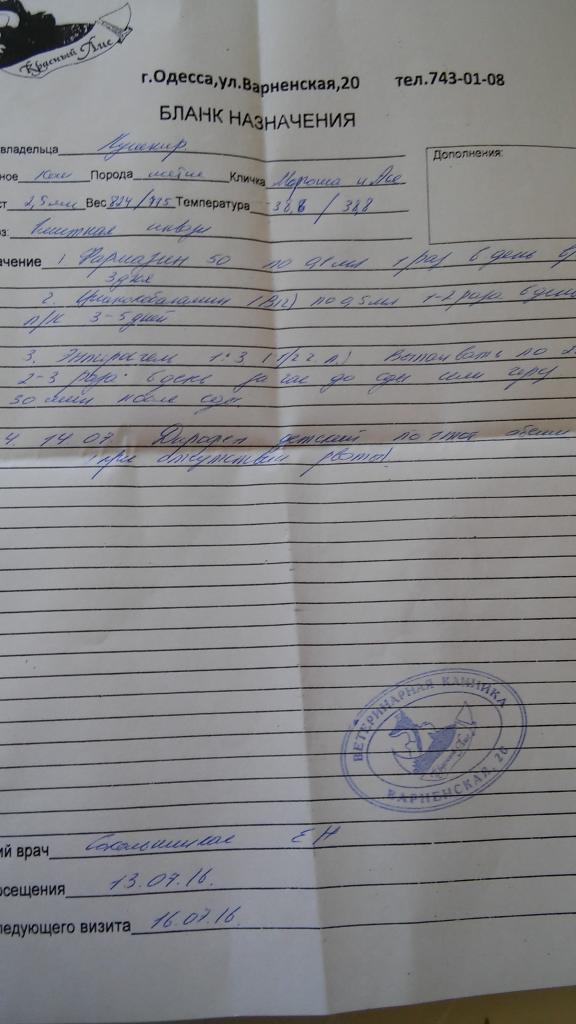 Красный Лис
г.Одесса,ул.Варненская,20 тел.743-01-08
БЛАНК НАЗНАЧЕНИЯ
владельца Кушнир
Дополнения:
ное Кош Порода метис Кличка Маркиза и Алс
ст 2,5 мес Вес 824/775 Температура 38,8 / 38,8
оз:
ачение 1. Фармазин 50 по 0,1 мл 1 раз в день в/
3 дня
2. Цианокобаламин (В12) по 0,5 мл 1-2 раза в день
п/к 3-5 дней
3. Энтеросгель 1:3 Выпаивать по 2
2-3 раза в день за час до еды или через
30 мин после еды
4 14.07. Дирофен детский по этой
(при отсутствии рвоты!
ВЕТЕРИНАРНАЯ КЛИНИКА
Красный Лис
ВАРНЕНСКАЯ, 20
ий врач ЕН
осещения 13.07.16.
ледующего визита 16.07.16.